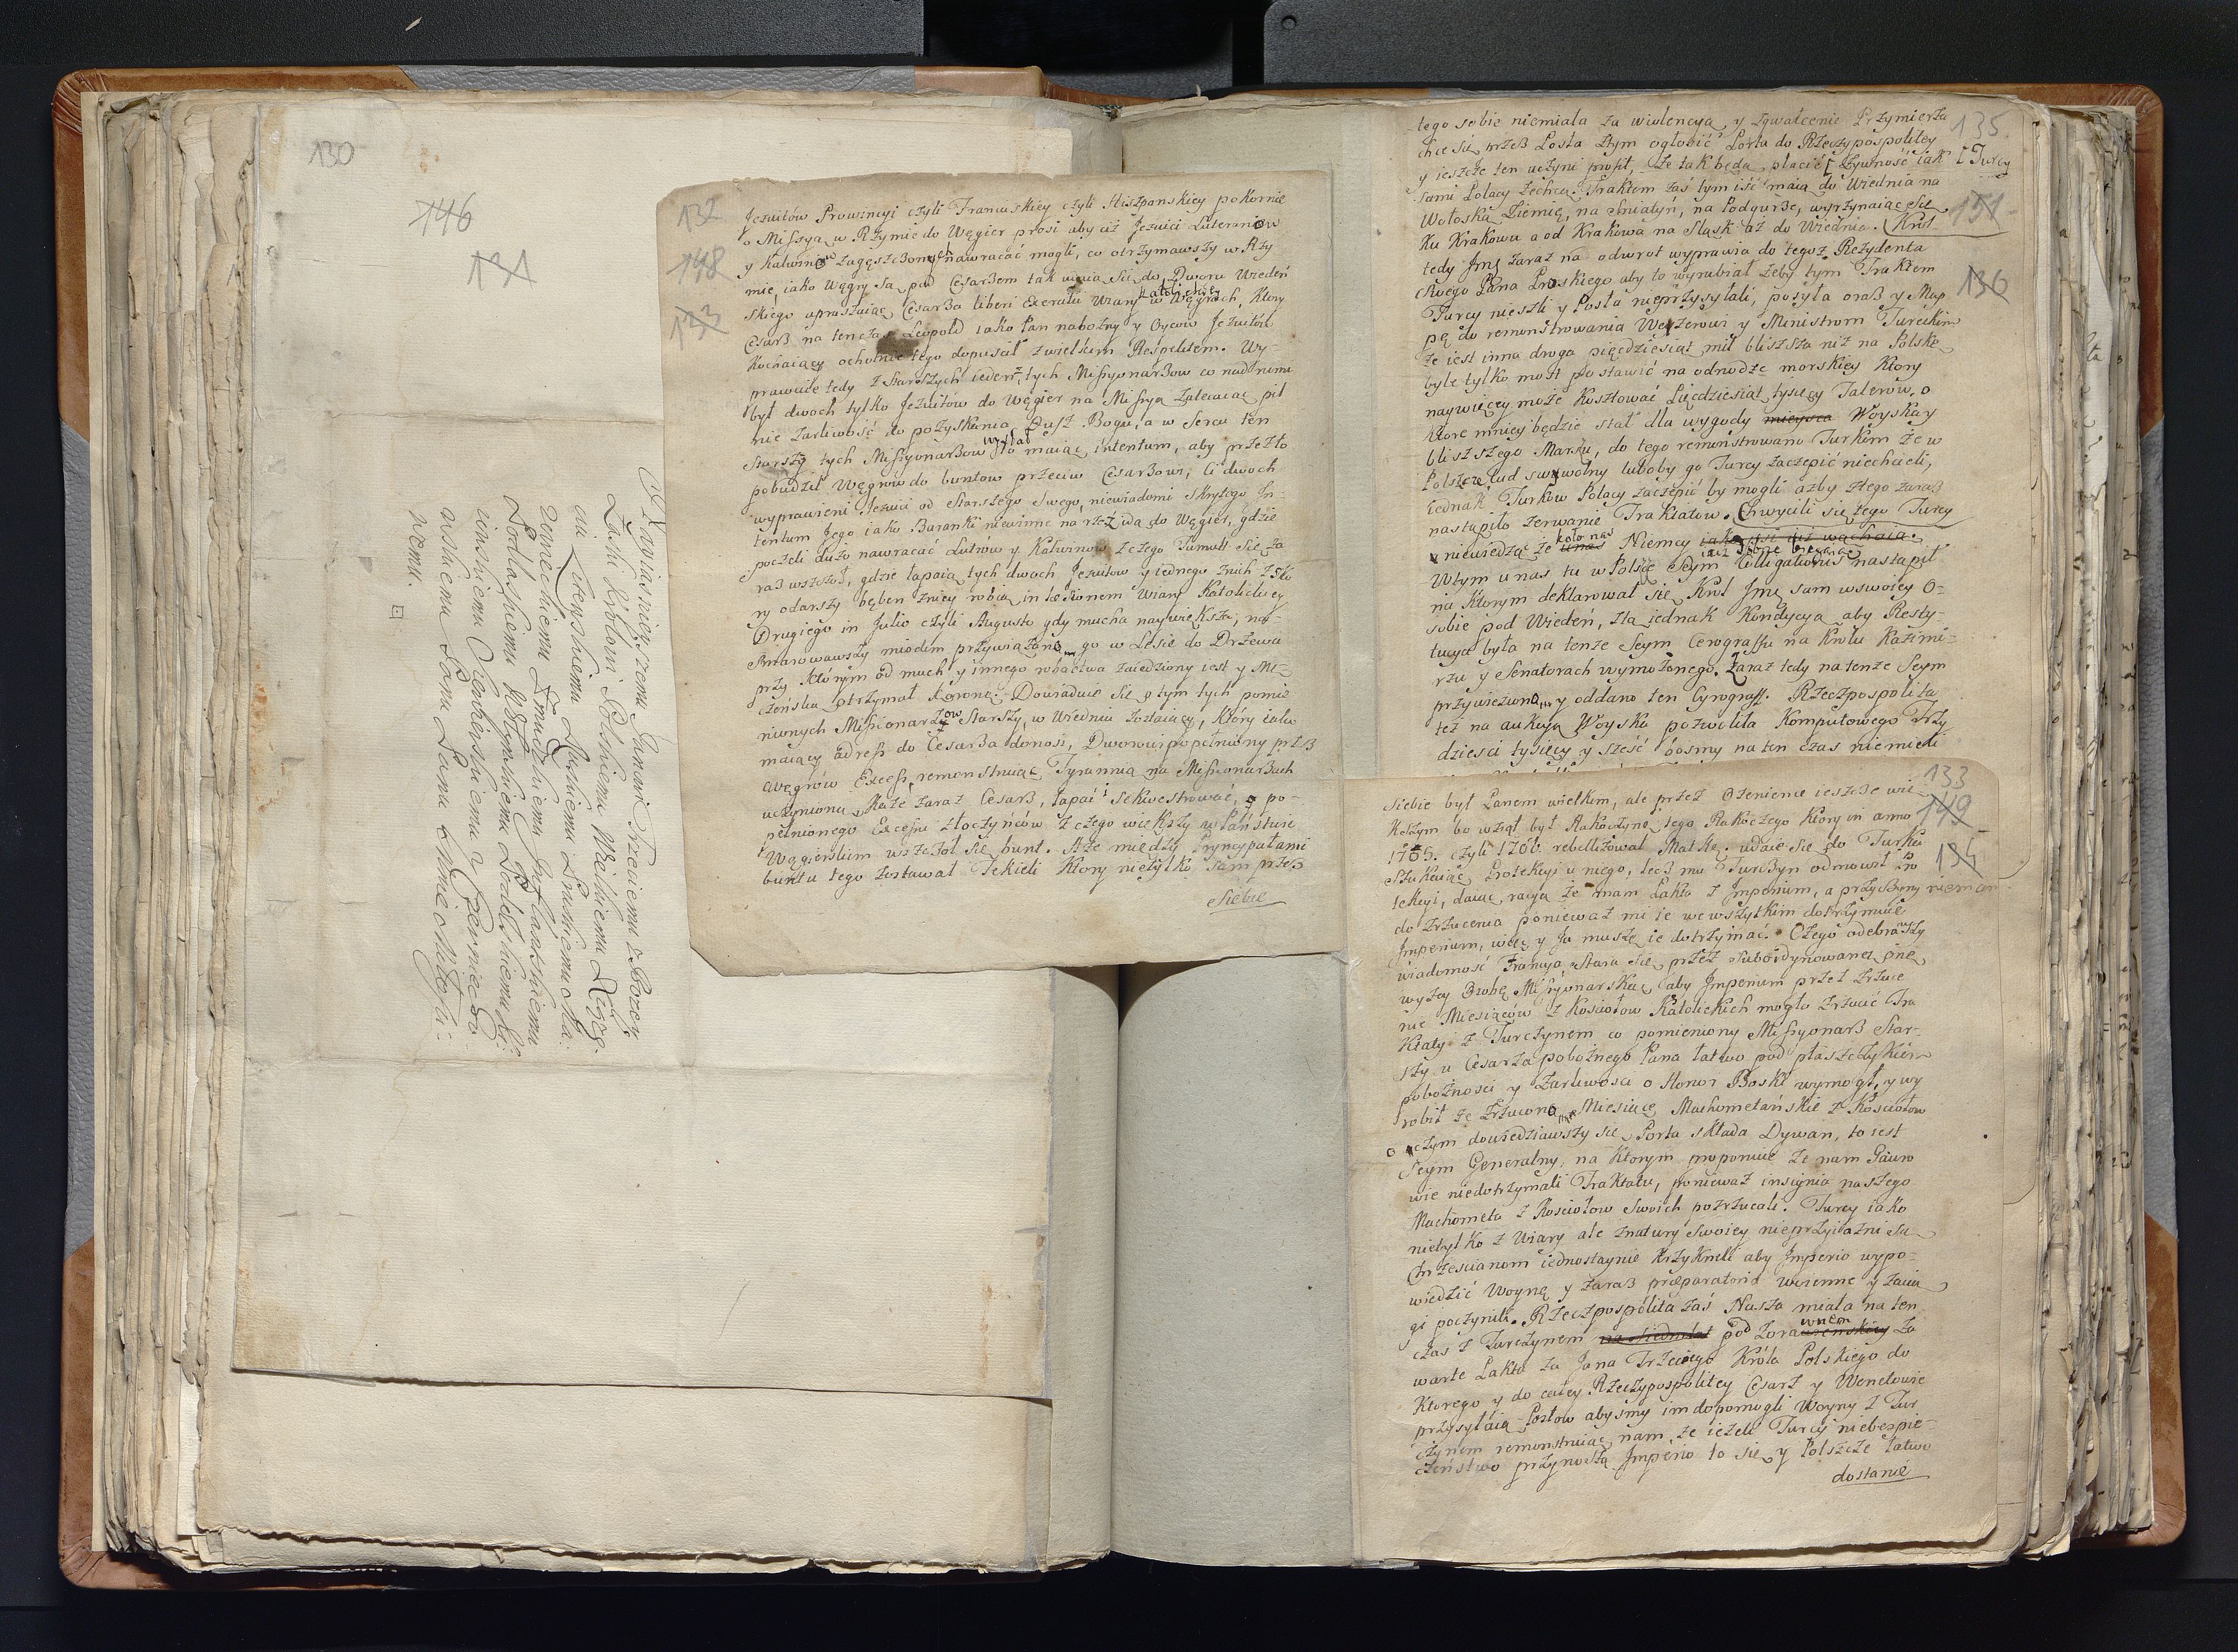 130
146
131
Nayiasnieyszemu Janowi Trzeciemu z Bozey
Łaski Krolowi Polskiemu Wielkiemu Xiążę:
ciu Litewskiemu Ruskiemu Pruskiemu Ma:
zowieckiemu Zmudzkiemu Inflantskiemu
Podlaskiemu Wołynskiemu
Panu Panu Memu Miłosci:
wemu
132
148
133
Jezuitów Prowincyi czyli Francuskiey czyli Hiszpanskiey pokornie
o Missyą w Rzymie do Węgier prosi aby iż Jezuici Luteranow
y Kalwinow zagęszczonych nawracać mogli, co otrzymawszy w Rzy
mie, iako Węgry są pod Cesarzem tak udaią się do Dworu Wiedeń
skiego upraszaiąc Cesarza liberi Exercitu Wiary Katolickiey w Węgrach, ktory
Cesarz na tenczas Leopold iako Pan nabożny y Oycow Jezuitow
kochaiący ochotnie tego dopuscił z wielkim Respektem. Wy-
prawuie tedy z Starszych ieden z tych Missyonarzow co nad niemi
był dwoch tylko Jezuitów do Węgier na Missyą zalecaiąc pil
nie żarliwość do pozyskania Dusz Bogu, a w Sercu ten
Starszy tych Missyonarzow maiąc intentum, aby przez to
pobudził Węgrow do buntow przeciw Cesarzowi, Ci dwoch
wyprawieni Jezuici od Starszego Swego, niewiadomi skrytego In-
tentum Jego iako Baranki niewinne na rzeź idą do Węgier, gdzie
poczeli dużo nawracać Lutrów y Kalwinow z czego Tumult się za
raz wszczoł, gdzie łapaią tych dwoch Jezuitow y iednego z nich z sko
ry odarszy bęben z niey robią in læsionem Wiary Katolickiey
Drugiego in Julio czyli Augusto gdy mucha naywiększa, na-
smarowawszy miodem przywiązano go w Lesie do Drzewa
przy ktorym od much y innego robactwa ziedziony iest y Mę-
czeńską otrzymał Koronę. Dowiaduie się o tym tych pomie
nionych Missionarzow Starszy, w Wiedniu zostaiący, ktory iako
maiący adress do Cesarza donosi, Dworowi popełniony przez
Węgrów Excess, remonstruiąc Tyrannią na Missionarzach
uczynioną. Każe zaraz Cesarz, łapać i sekwestrować, o po-
pełnionego Excessu złoczyńców z czego większy w Państwie
Węgierskim wszczoł się bunt. Aże między Pryncypałami
buntu tego zostawał Tekieli Ktory nietylko sam przez
siebie
135
151
136
tego sobie niemiała za wiolencyą, y zgwałcenie Przymierza
chce się przez Posta ztym ogłosić Porta do Rzeczypospolitey
y ieszcze ten uczyni profit, że tak będą płacić [ żywność iak [ Turcy
sami Polacy zechcą. Traktem zaś tym iść maią do Wiednia na
Wołoską Ziemię, na Sniatyń, na Podgurze, wyrzynaiąc się
ku Krakowu a od Krakowa na Sląsk aż do Wiednia. Krol
tedy Jmę zaraz na odwrot wyprawia do tegoż Rezydenta
swego Pana Proskiego aby to wyrabiał żeby tym Traktem
Turcy nieszli y Posta nieprzysyłali, posyła oraz y Map
pę do remonstrowania Wezerowi y Ministrom Tureckim
że iest inna droga pięćdziesiąt mil bliszsza niż na Polskę
byle tylko most postawić na odnodze morskiey ktory
naywięcy może kosztować Pięćdziesiąt tysięcy Talerów, o
ktore mniey będzie stał dla wygody mieysca Woyska y
bliszszego Marszu, do tego remonstrowano Turkom że w
Polszcze lud swawolny luboby go Turcy zaczepić niechcieli,
iednak Turkow Polacy zaczepić by mogli azby z tego zaraz
nastąpiło zerwanie Traktatow. Chwycili się tego Turcy
niewiedząc że koło nas unas Niemcy
Wtym unas tu w Polszcę Seym Colligationis nastąpił
na ktorym deklarował się Krol Jmę sam w swoiey O-
sobie pod Wiedeń, Zta iednak Kondycyą aby Resty-
tucya była na tenże Seym Cerograffu na Krolu Kazimi-
rzu y Senatorach wymożonego. Zaraz tedy na tenże Seym
przywieziono y oddano ten Cyrograff. Rzeczpospolita
też na aukcyą Woyska pozwoliła Komputowego Trzy
dziesci tysięcy y sześć bosmy na ten czas niemieli
133
149
134
siebie był Panem wielkim, ale przez ożenienie ieszcze wie
kszym bo wziął był Rakoczyną tego Rakoczego ktory in anno
1705. czyli 1706. rebellizował Matkę. udaie się do Turka
szukaiąc Protekcyi u niego, lecz mu Turczyn odmowił Pro
tekcyi, daiąc racyą że mam Pakta z Imperium, a przyczyny niemam
do zrzucenia ponieważ mi ie we wszytkim dotrzymuie
Imperium, więc y Ja muszę ie dotrzymać. Czego odebrawszy
wiadomość Francya, stara się przez subordynowaną one
wyżey Osobę Missyonarską, aby Imperium przez zrzuce
nie Miesiąców z Kosciołow Katolickich mogło zrzucić Tra
ktaty z Turczynem co pomieniony Missyonarz Star-
szy u Cesarza pobożnego Pana łatwo pod płaszczykiem
pobożnosci y Żarliwosci o Honor Boski wymogł, y wy
robił że zrzucono Miesiące Machometańskie z Kosciołow
o czym dowiedziawszy się Porta składa Dywan, to iest
Seym Generalny, na ktorym proponuie że nam Gaiuro
wie niedotrzymali Traktatu, ponieważ insignia naszego
Machometa z Kosciołow Swoich pozrzucali. Turcy iako
nietylko z Wiary ale z natury swoiey nieprzyiaźni są
Chrzescianom iednostaynie krzykneli aby Imperio wypo-
wiedzić Woynę y zaraz præparatoria woienne y zacią
gi poczynili. Rzeczpospolita zaś Nasza miała na ten
czas z Turczynem na siedmlat pod Zorawnem za
warte Pakta za Jana Trzeciego Króla Polskiego do
ktorego y do całey Rzeczypospolitey Cesarz y Wenetowie
przysyłaią Postow abysmy im dopomogli Woyny z Tur
czynem remonstruiąc nam, że ieżeli Turcy niebespie-
czeństwo przynoszą Imperio to się y Polszcze łatwo
dostanie